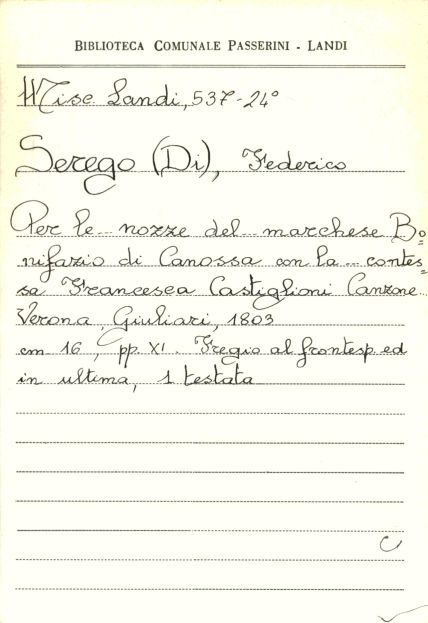 BIBLIOTECA COMUNALE PASSERINI - LANDI
Misc. Landi, 537-24°
Serego (Di), Federico
Per le nozze del marchese Bo=
nifazio di Canossa con la contes=
sa Francesca Castiglioni Canzone
Verona, Giuliari, 1803
cm 16, pp. XI. Fregio al frontesp. ed
in ultima, 1 testata
C